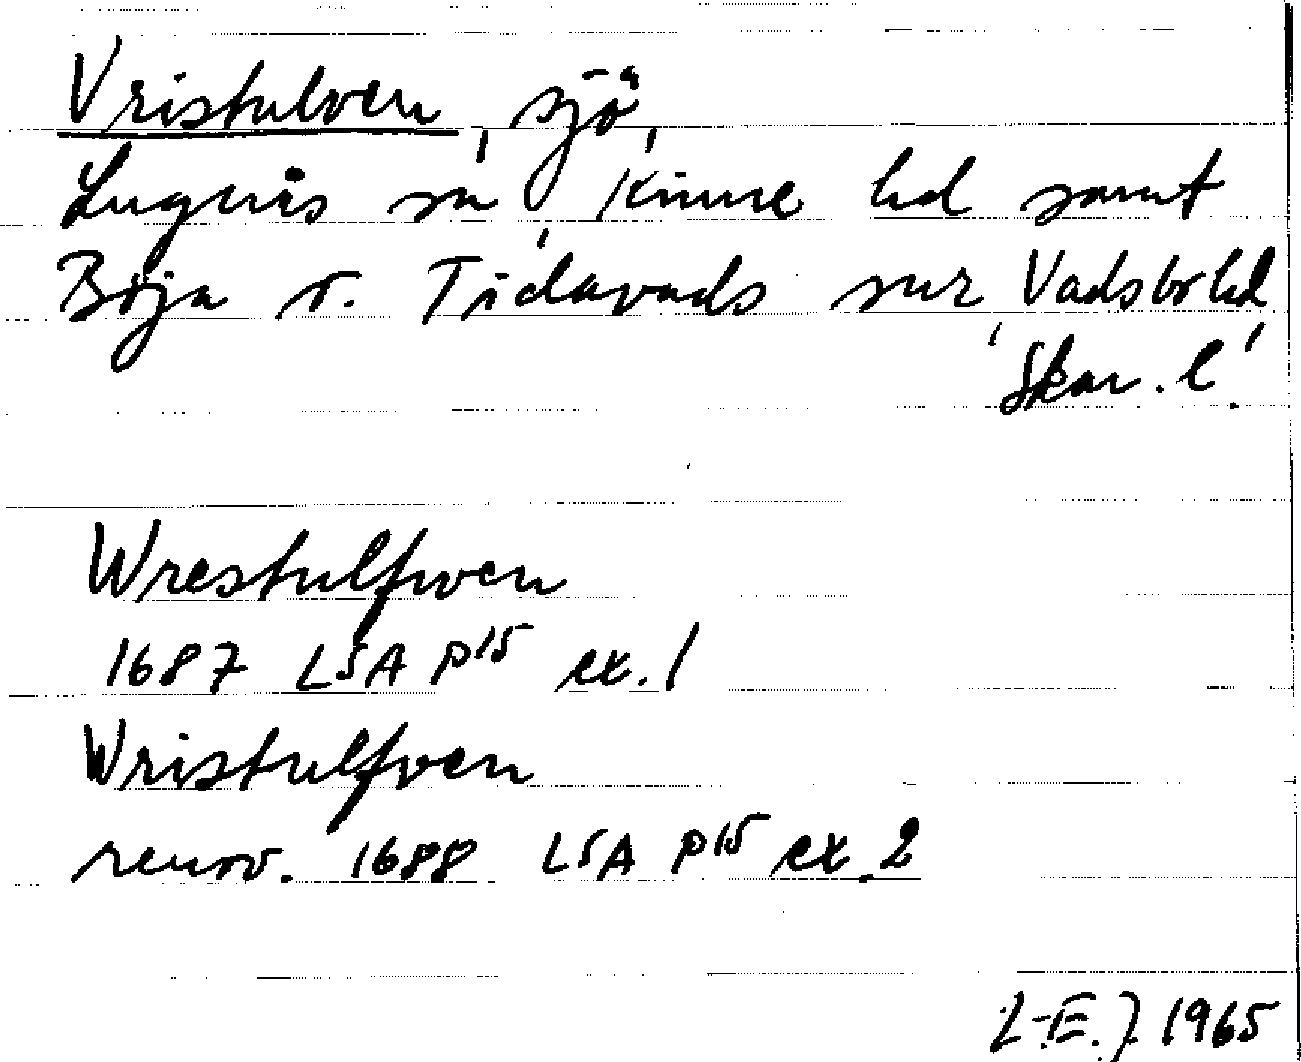 Vristulven, sjö,
Lugnås sn, Kinne hd samt
Böja o. Tidavads snr, Vadsbo hd,
Skar. l.
Wrestulfwen
1687 LSA P15 ex. 1
Wristulfven
renov. 1688 LSA P15 ex. 2
L-E. J 1965